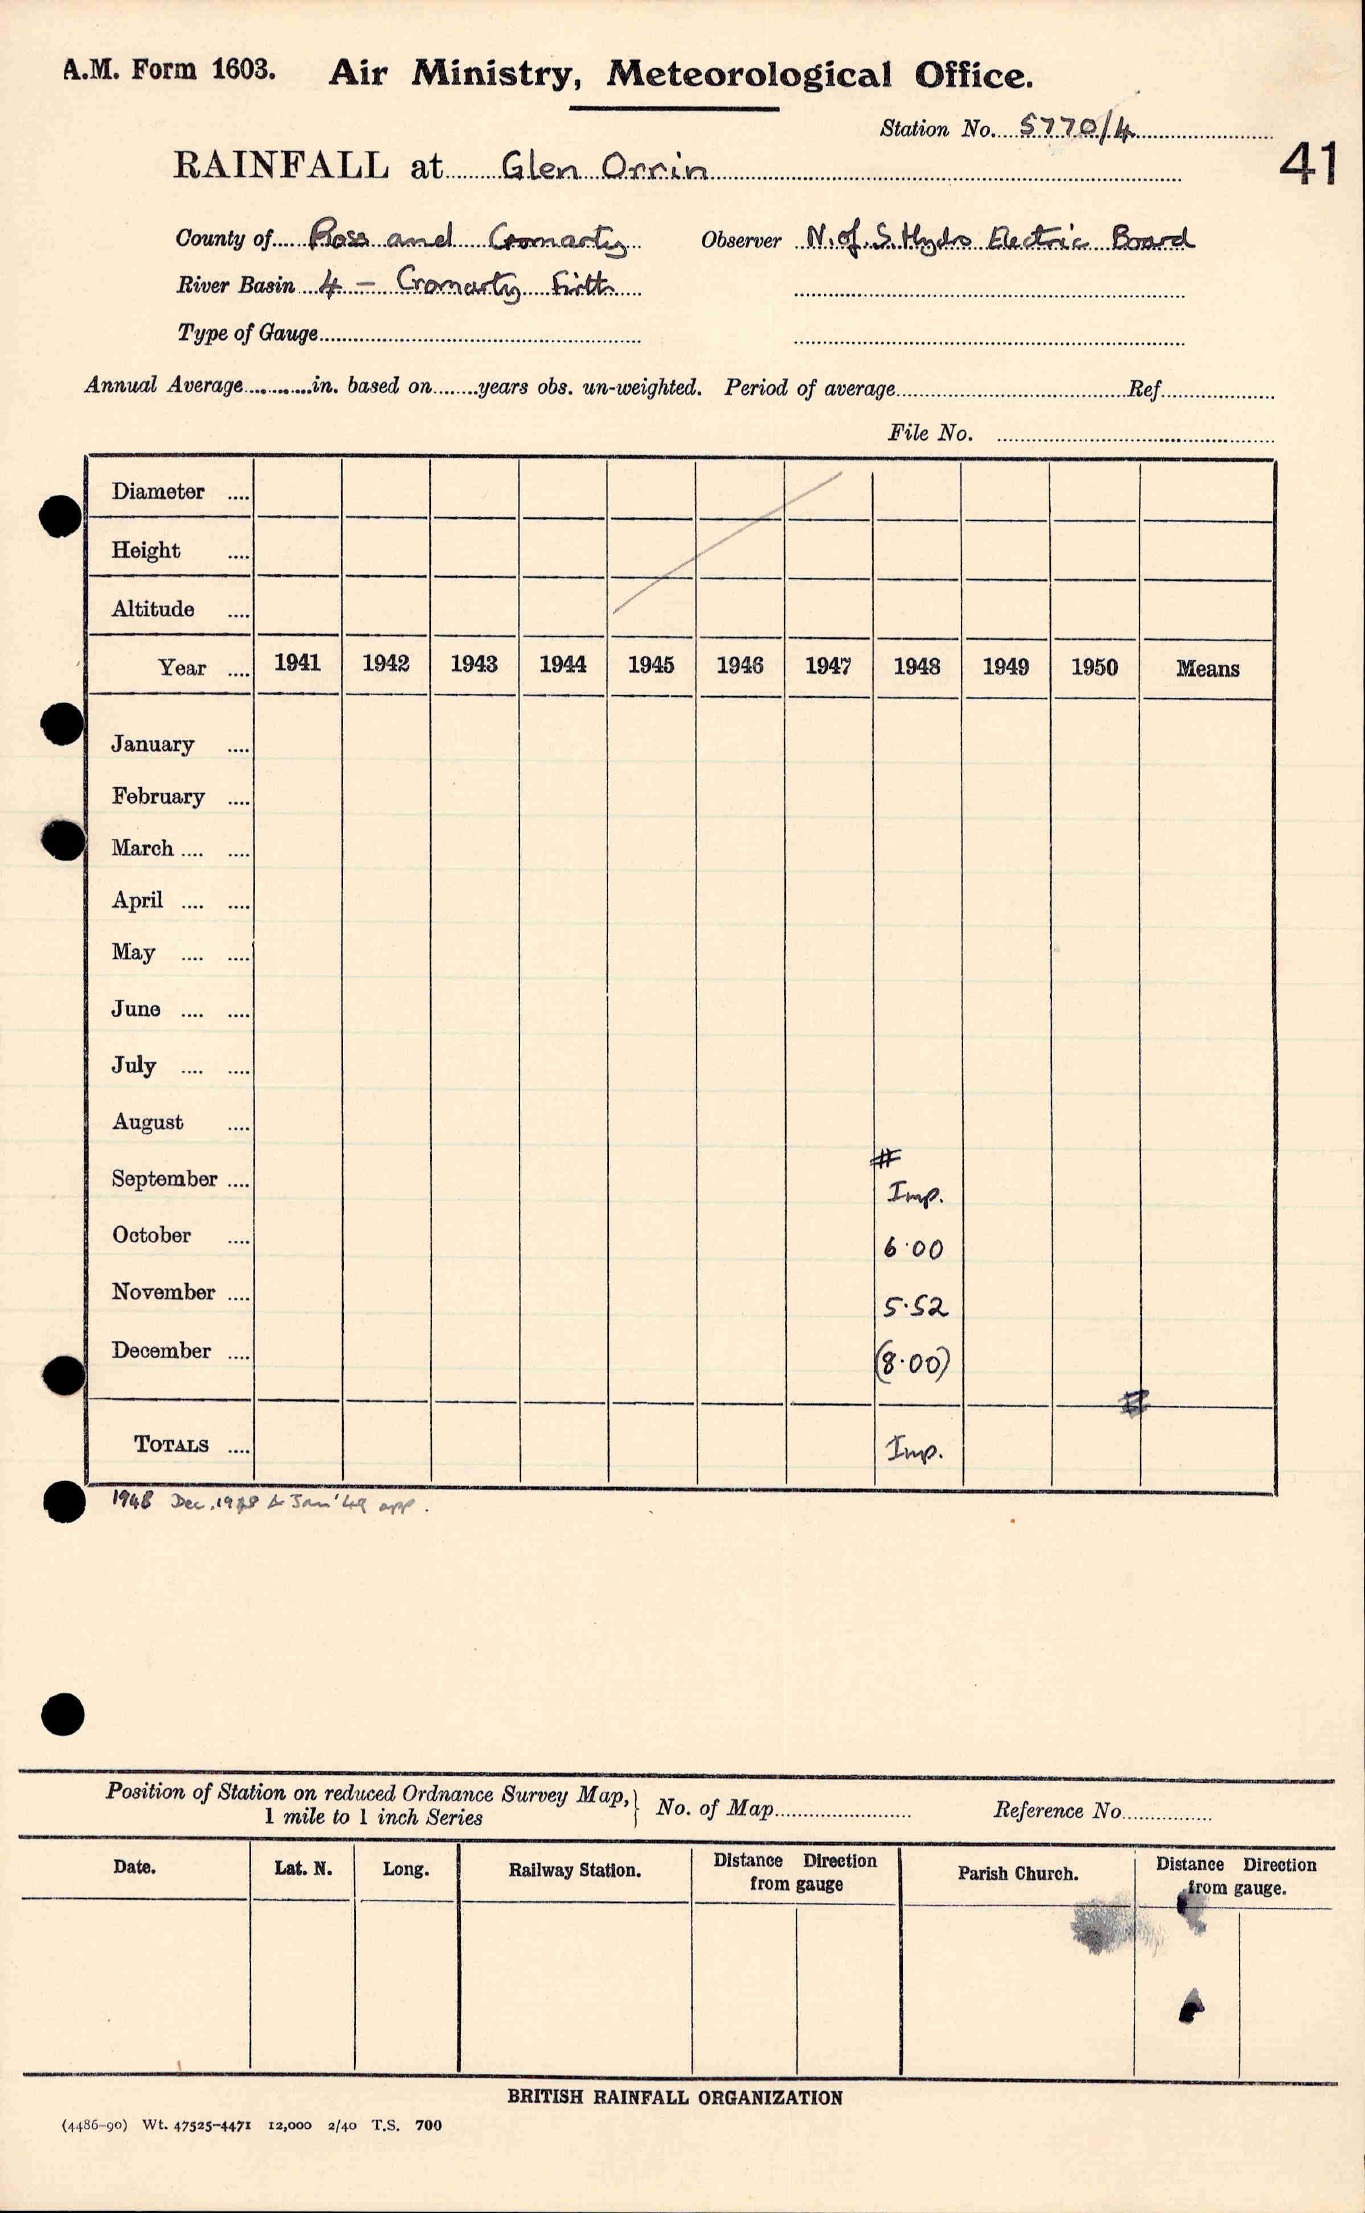 A.M. Form 1603. Air Ministry, Meteorological Office.
Station No. 5770/4
41
RAINFALL at Glen Orrin
County of Ross and Cromarty Observer N. of S. Hydro Electric Board
River Basin 4 – Cromarty Firth
Type of Gauge
Annual Average............in. based on........years obs. un-weighted. Period of average Ref.
File No.
Diameter ....
Height ....
Altitude ....
Year .... 1941 1942 1943 1944 1945 1946 1947 1948 1949 1950 Means
January ....
February ....
March .... ....
April .... ....
May .... ....
June .... ....
July .... ....
August ....
#
September .... Imp.
October .... 6·00
November .... 5·52
December .... (8·00)
#
TOTALS .... Imp.
1948 Dec, 1948 & Jan '49 app.
Position of Station on reduced Ordnance Survey Map, 1 mile to 1 inch Series } No. of Map Reference No.
Date. Lat. N. Long. Railway Station. Distance Direction from gauge Parish Church. Distance Direction from gauge.
BRITISH RAINFALL ORGANIZATION
(4486–90) Wt. 47525–4471 12,000 2/40 T.S. 700